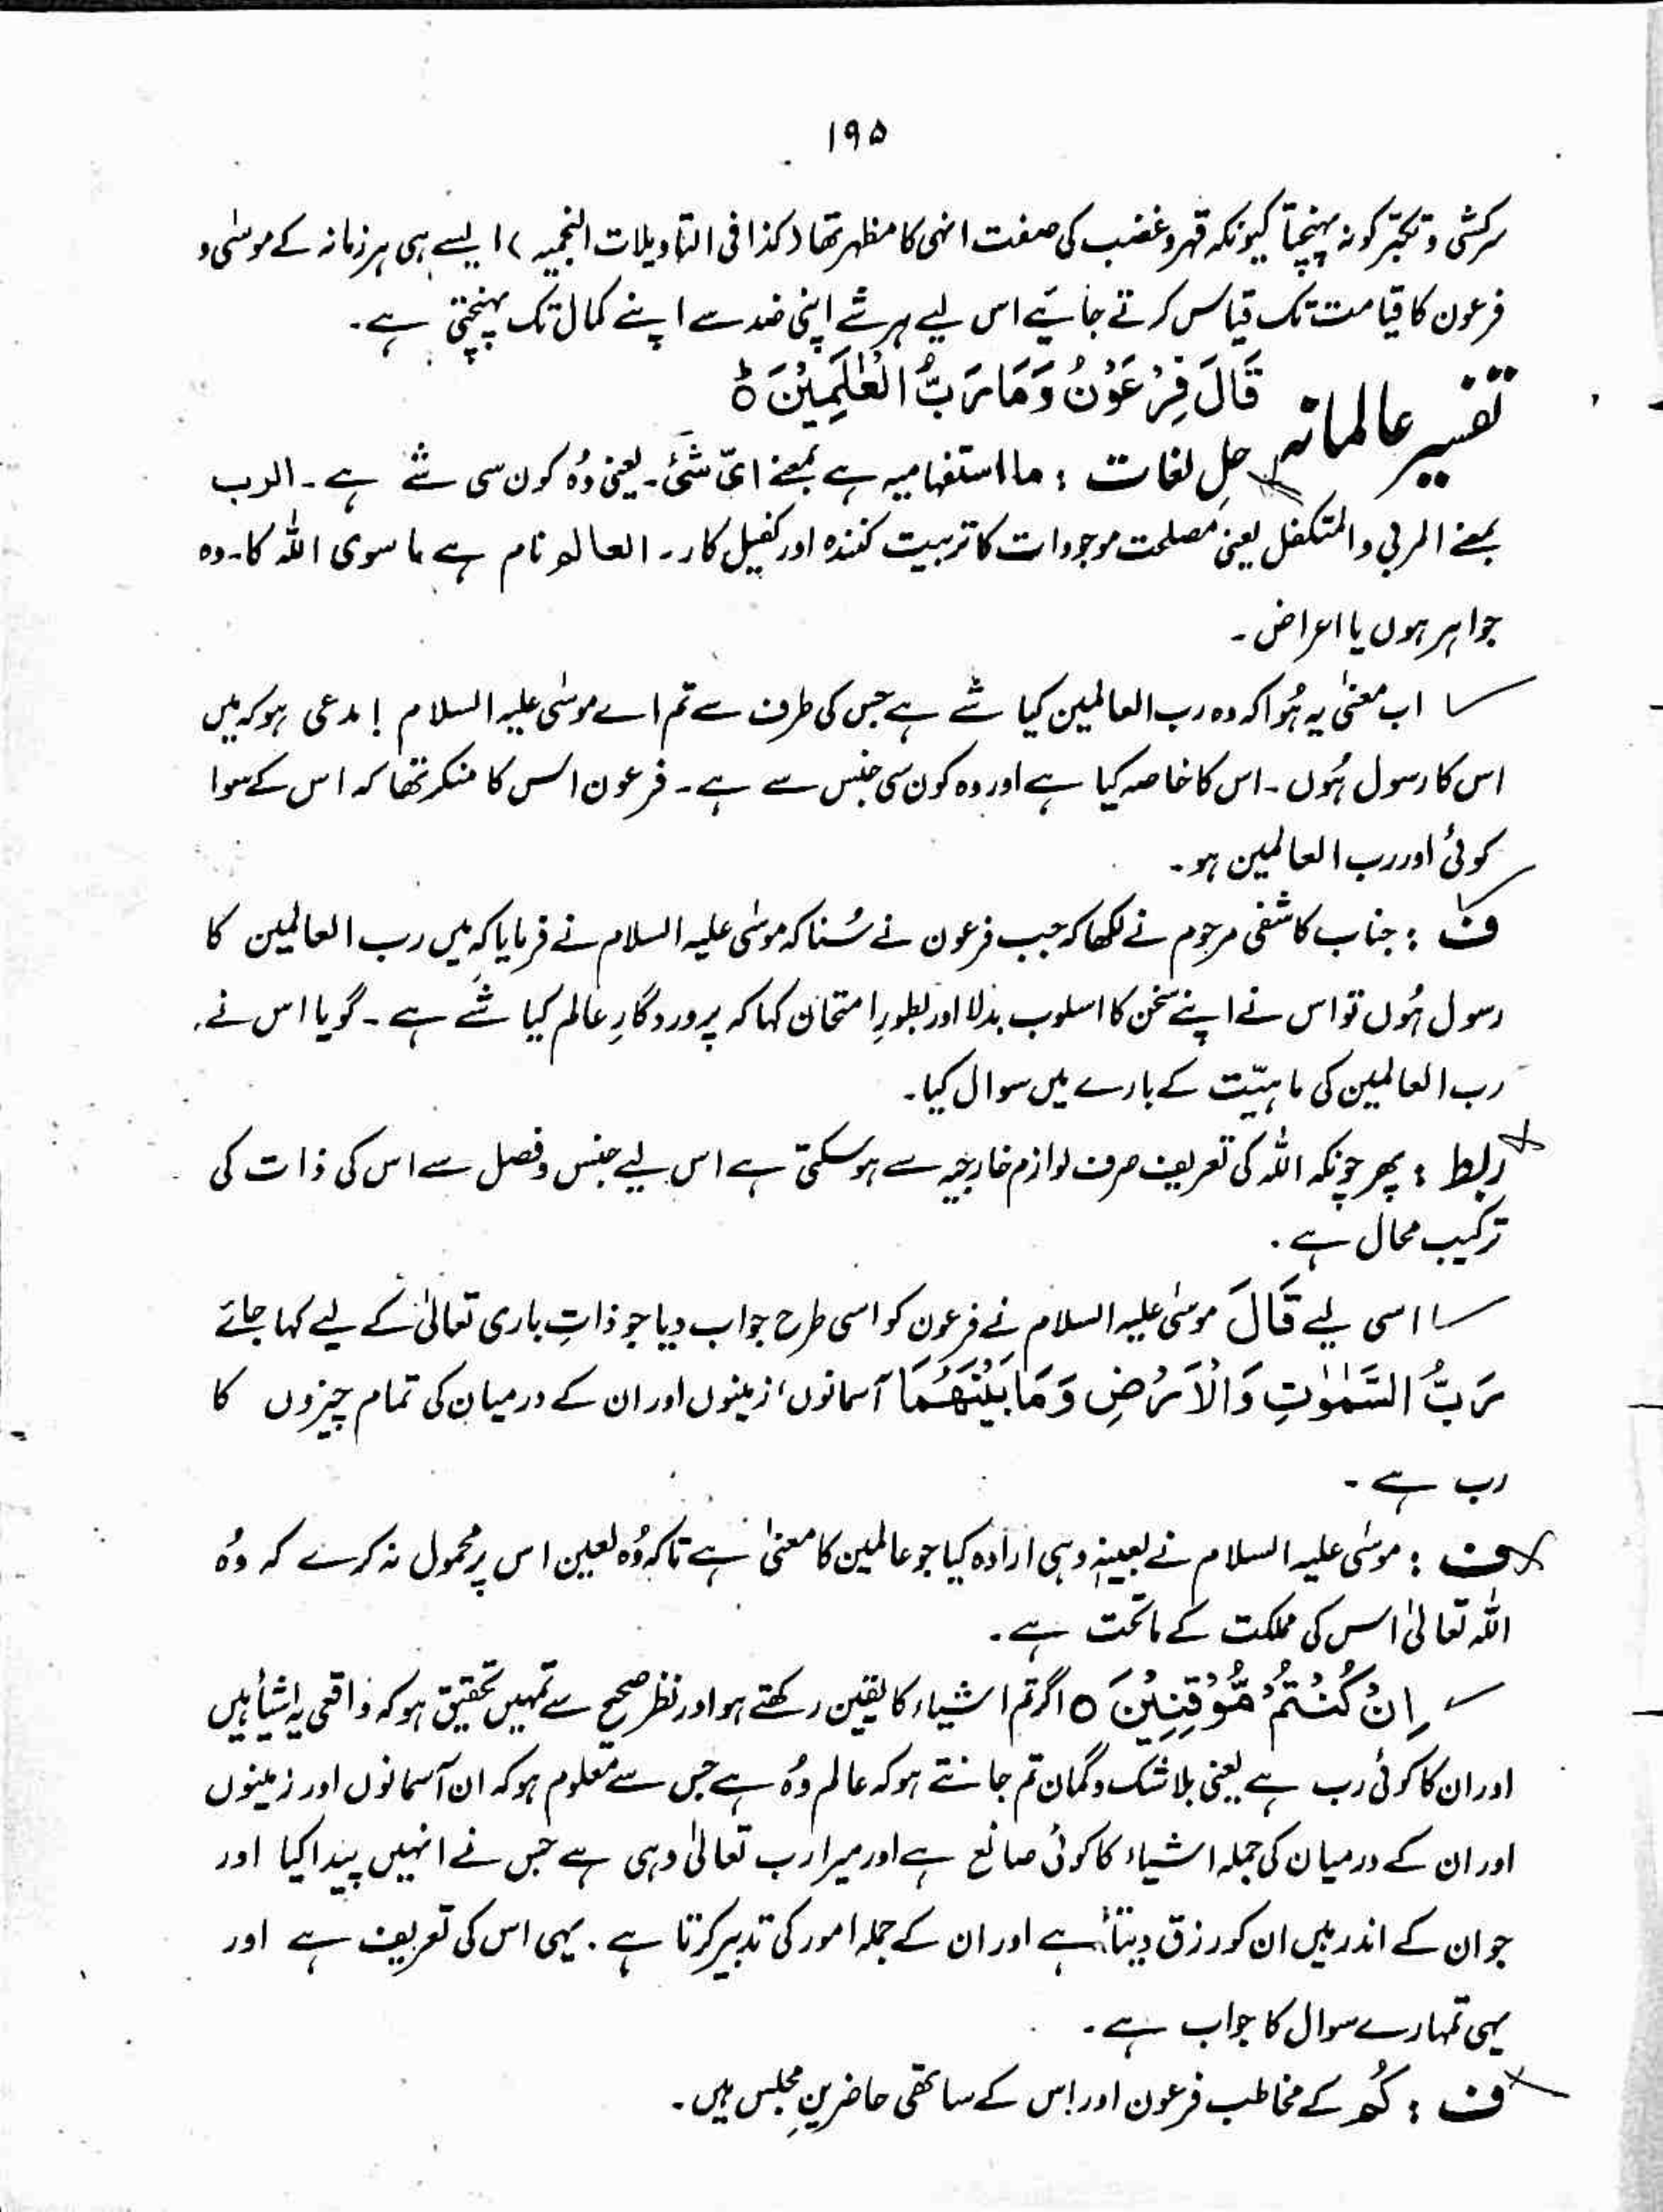 ۱۹۵
سرکشی و تکبّر کو نہ پہنچتا کیونکہ قہر و غضب کی صفت انہی کا مظہر تھا (کذا فی التاویلات النجمیہ) ایسے ہی ہر زمانہ کے موسٰی و
فرعون کا قیامت تک قیاس کرتے جائیے اس لیے ہر شے اپنی ضد سے اپنے کمال تک پہنچتی ہے۔
تفسیر عالمانہ قَالَ فِرْعَوْنُ وَمَا رَبُّ الْعٰلَمِیْنَ ؕ
حلِ لغات : ما استفہامیہ ہے بمعنے ایّ شَیْءٍ۔ یعنی وُہ کون سی شے ہے۔ الرب
بمعنے المربی والمتکفل یعنی مصلحت موجودات کا تربیت کنندہ اور کفیل کار۔ العالم نام ہے ما سوی اللہ کا۔ وہ
جواہر ہوں یا اعراض۔
اب معنیٰ یہ ہُوا کہ وہ رب العالمین کیا شے ہے جس کی طرف سے تم اے موسٰی علیہ السلام ! مدعی ہو کہ میں
اس کا رسول ہُوں۔ اس کا خاصہ کیا ہے اور وہ کون سی جنس سے ہے۔ فرعون اس کا منکر تھا کہ اس کے سوا
کوئی اور رب العالمین ہو۔
ف : جناب کاشفی مرحوم نے لکھا کہ جب فرعون نے سُنا کہ موسٰی علیہ السلام نے فرمایا کہ میں رب العالمین کا
رسول ہُوں تو اس نے اپنے سخن کا اسلوب بدلا اور بطورِ امتحان کہا کہ پروردگارِ عالم کیا شَے ہے۔ گویا اس نے
رب العالمین کی ماہیّت کے بارے میں سوال کیا۔
ربط : پھر چونکہ اللہ کی تعریف صرف لوازم خارجیہ سے ہو سکتی ہے اس لیے جنس و فصل سے اس کی ذات کی
ترکیب محال ہے۔
اسی لیے قَالَ موسٰی علیہ السلام نے فرعون کو اسی طرح جواب دیا جو ذاتِ باری تعالیٰ کے لیے کہا جائے
رَبُّ السَّمٰوٰتِ وَالْاَرْضِ وَمَا بَیْنَہُمَا آسمانوں، زمینوں اور ان کے درمیان کی تمام چیزوں کا
رب ہے۔
ف : موسٰی علیہ السلام نے بعینہٖ وہی ارادہ کیا جو عالمین کا معنیٰ ہے تاکہ وُہ لعین اس پر محمول نہ کرے کہ وُہ
اللہ تعالیٰ اس کی مملکت کے ماتحت ہے۔
اِنْ کُنْتُمْ مُّوْقِنِیْنَ ○ اگر تم اشیاء کا یقین رکھتے ہو اور نظر صحیح سے تمہیں تحقیق ہو کہ واقعی یہ اشیأ ہیں
اور ان کا کوئی رب ہے یعنی بلا شک و گمان تم جانتے ہو کہ عالم وُہ ہے جس سے معلوم ہو کہ ان آسمانوں اور زمینوں
اور ان کے درمیان کی جملہ اشیاء کا کوئی صانع ہے اور میرا رب تعالیٰ وہی ہے جس نے انہیں پیدا کیا اور
جو ان کے اندر ہیں ان کو رزق دیتا ہے اور ان کے جملہ امور کی تدبیر کرتا ہے۔ یہی اس کی تعریف ہے اور
یہی تمہارے سوال کا جواب ہے۔
ف : کُم کے مخاطب فرعون اور اس کے ساتھی حاضرینِ مجلس ہیں۔